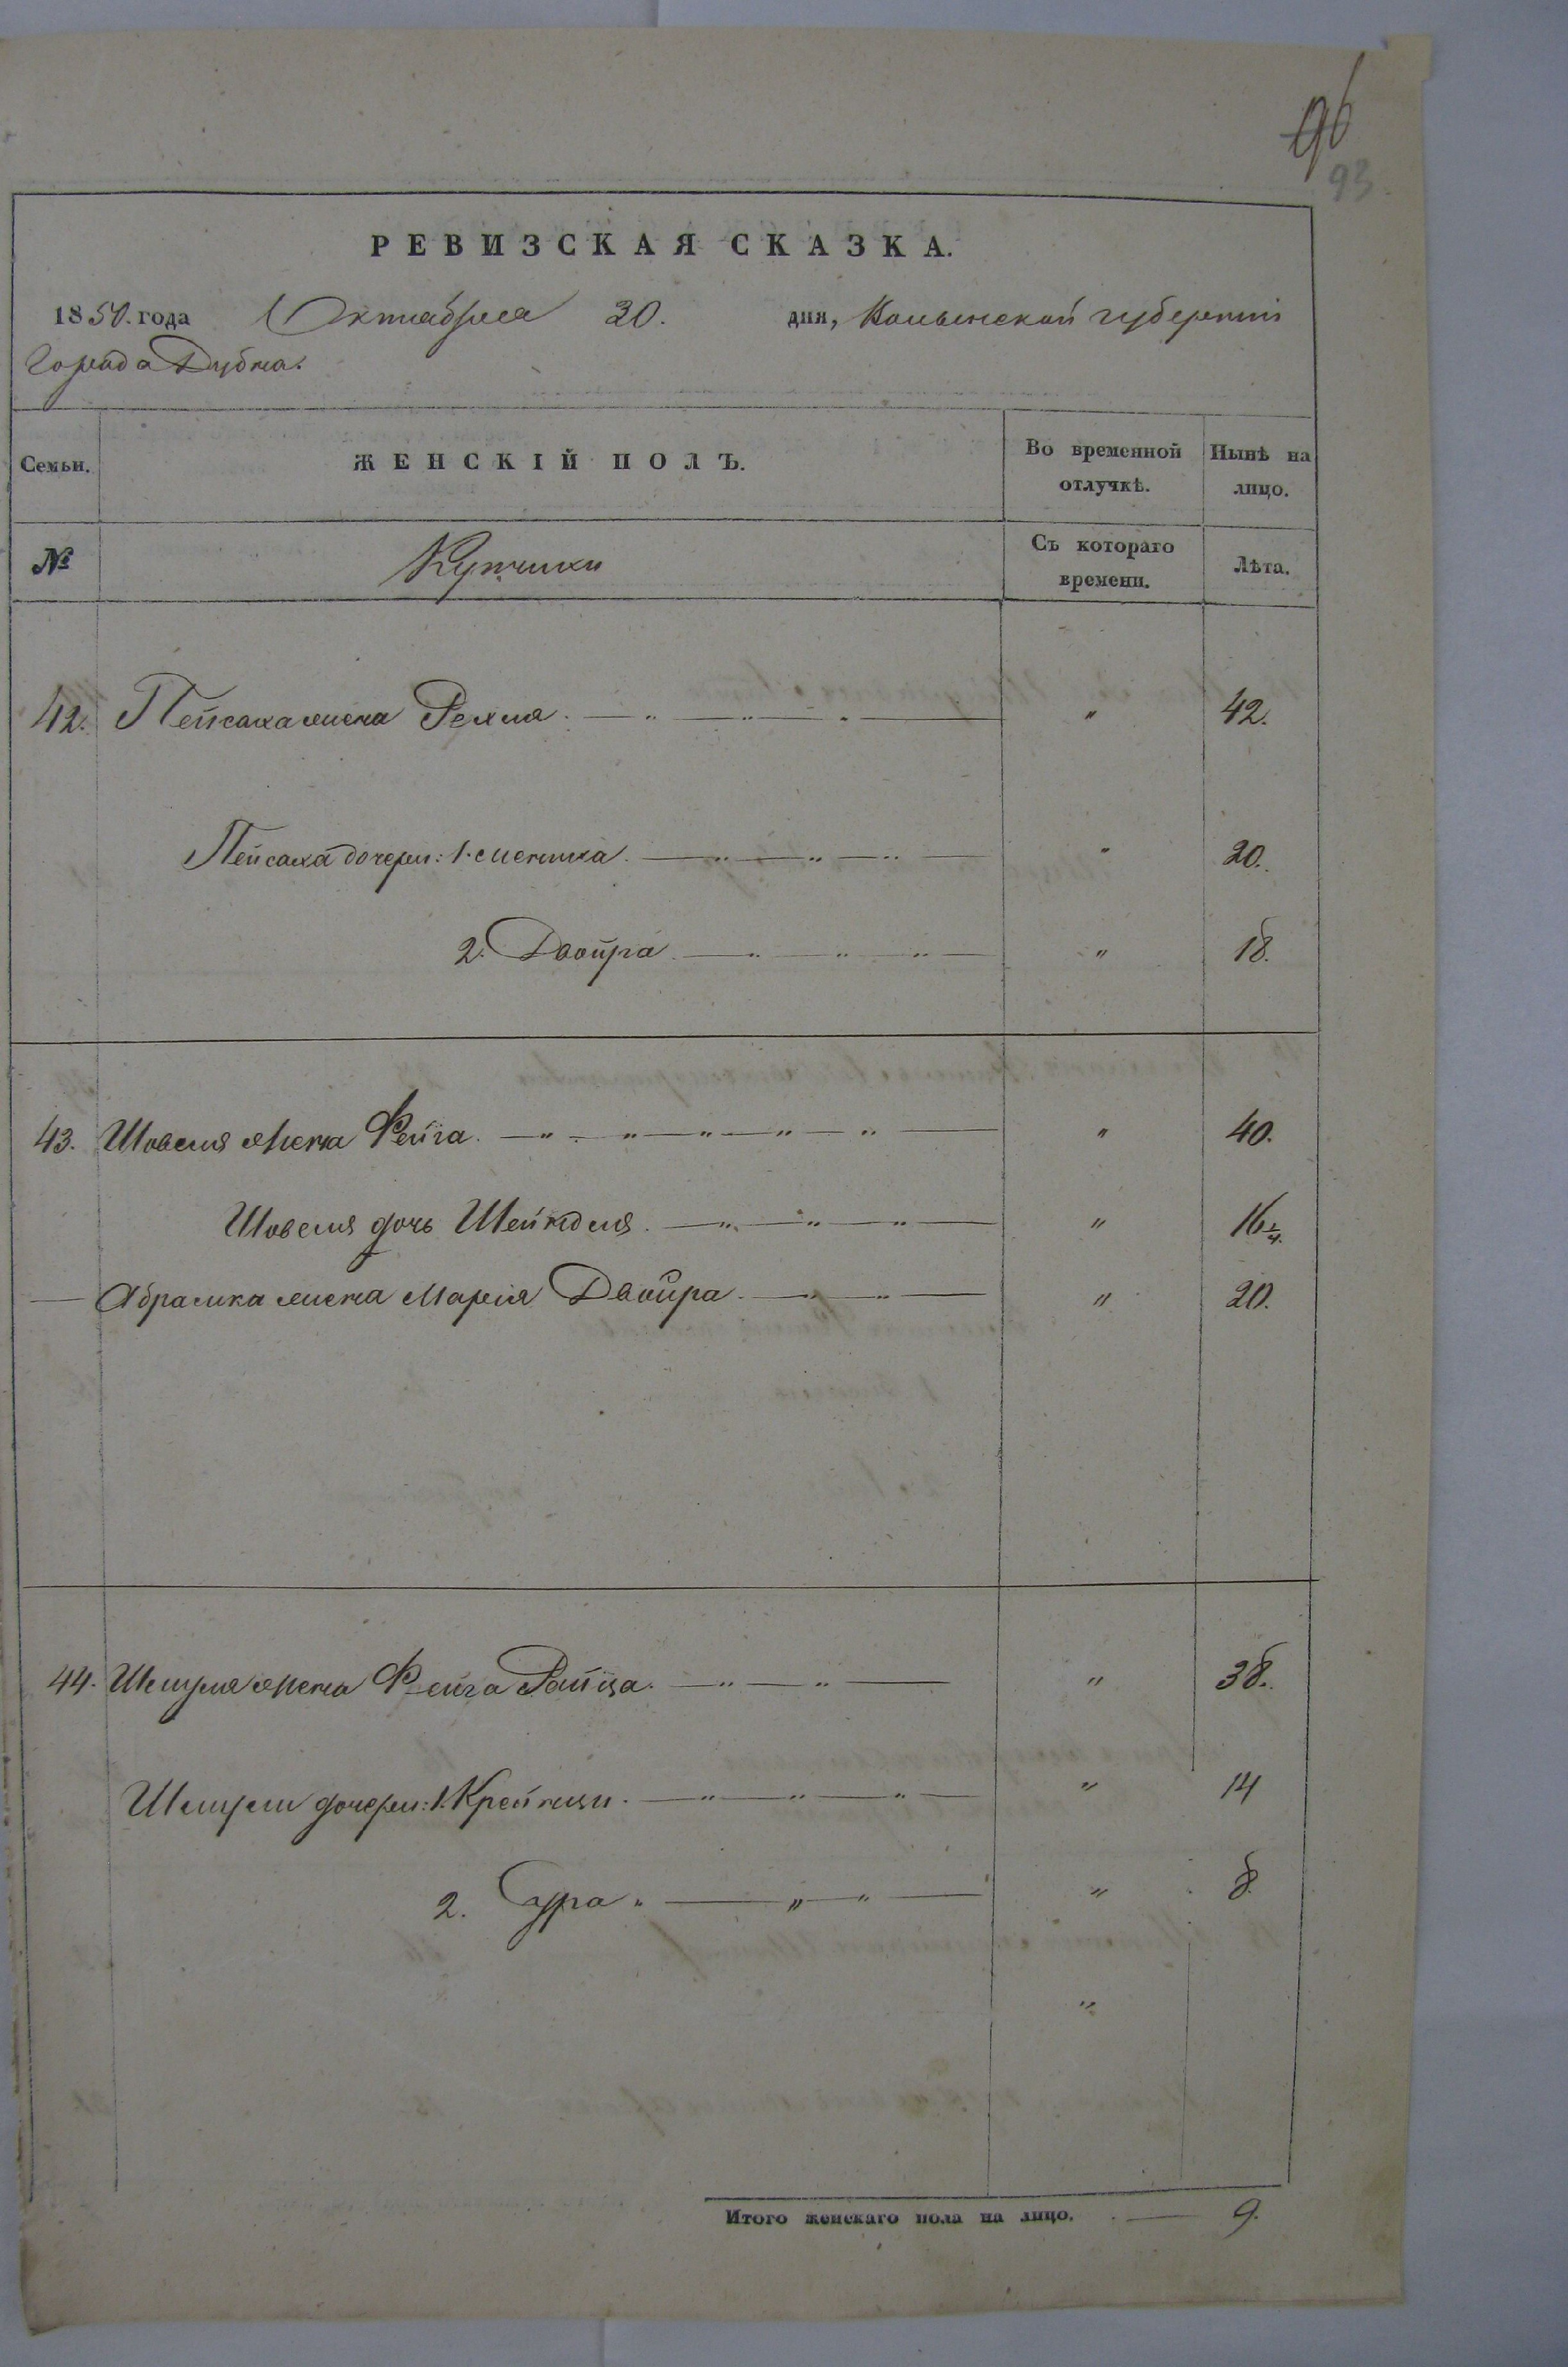 96
93
РЕВИЗСКАЯ СКАЗКА.
1850. года Октабрея 20. дня, Волынской губерніи
Города Дубна.
Семьи. ЖЕНСКІЙ ПОЛЪ. Во временной отлучкѣ. Нынѣ на лицо.
№ Съ котораго времени. Лѣта.
42. Пейсаха жена Рехля. " 42.
Пейсаха дочери: 1. " 20.
2. Двойра " 18.
43. Шовеля жена Фейга. " 40.
Шовеля дочь Шейндля. " 16 1/4.
Абрамка жена Маріля Двойра. " 20.
44. жена Фейга Райца. " 38.
дочери: 1. Крейнци. " 14
2. Сура. " 8.
"
Итого женскаго пола на лицо. 9.